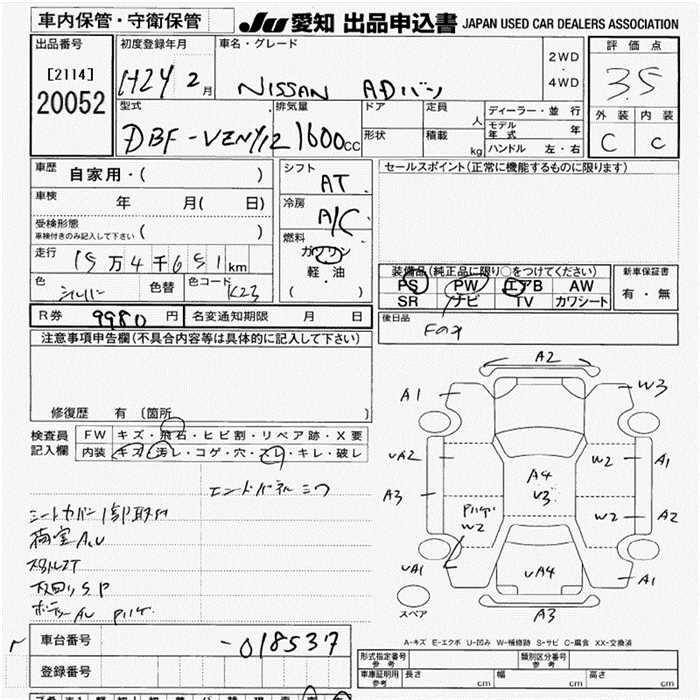 車内保管・守衛保管
JU 愛知 出品申込書 JAPAN USED CAR DEALERS ASSOCIATION
出品番号
[2114]
20052
初度登録年月
H24 2月
車名・グレード
NISSAN ADバン
2WD
・
4WD
評価点
3.5
外装 内装
C C
型式
DBF-VZNY12
排気量
1600cc
ドア
形状
定員 人
積載 kg
ディーラー・並行
モデル年式 年
ハンドル 左・右
車歴 自家用・( )
車検 年 月( 日)
受検形態
車検付きのみ記入して下さい ( )
走行 15万4千651km
色 シルバー 色替 色コード K23
シフト
AT
冷房
A/C
燃料
ガソリン
軽油
( )
セールスポイント(正常に機能するものに限ります)
装備品(純正品に限り○をつけてください)
PS PW エアB AW
SR ナビ TV カワシート
新車保証書
有・無
R券 9980円 名変通知期限 月 日
後日品
注意事項申告欄(不具合内容等は具体的に記入して下さい)
修復歴 有 〔箇所 〕
検査員記入欄
FW キズ・飛石・ヒビ割・リペア跡・X要
内装 キズ・汚レ・コゲ・穴・スレ・キレ・破レ
シートカバー1部取付
A2
A1 W3
UA2 W2 A1
A4
U3
A3 A2
W2 W2
UA1 UA4 A1
A3
スペア
A-キズ E-エクボ U-凹み W-補修跡 S-サビ C-腐食 XX-交換済
車台番号 -018537
登録番号
形式指定番号 参考
類別区分番号 参考
車庫証明用 参考 長さ cm 幅 cm 高さ cm